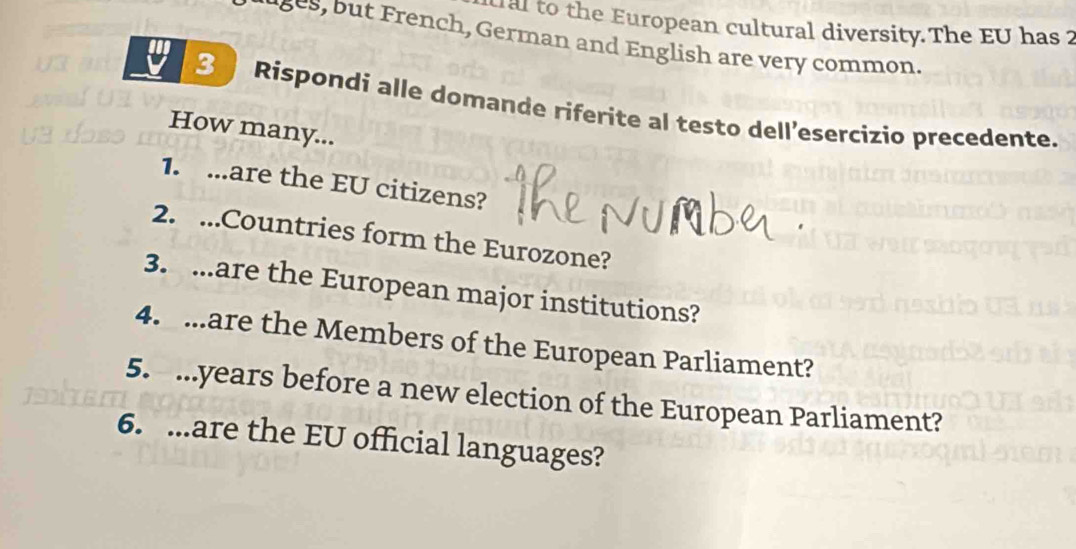 to the European cultural diversity. The EU has 2
but French, German and English are very common.
3 Rispondi alle domande riferite al testo dell'esercizio precedente.
How many...
1. ...are the EU citizens? the Number.
2. ...Countries form the Eurozone?
3. ...are the European major institutions?
4. ...are the Members of the European Parliament?
5. ...years before a new election of the European Parliament?
6. ...are the EU official languages?